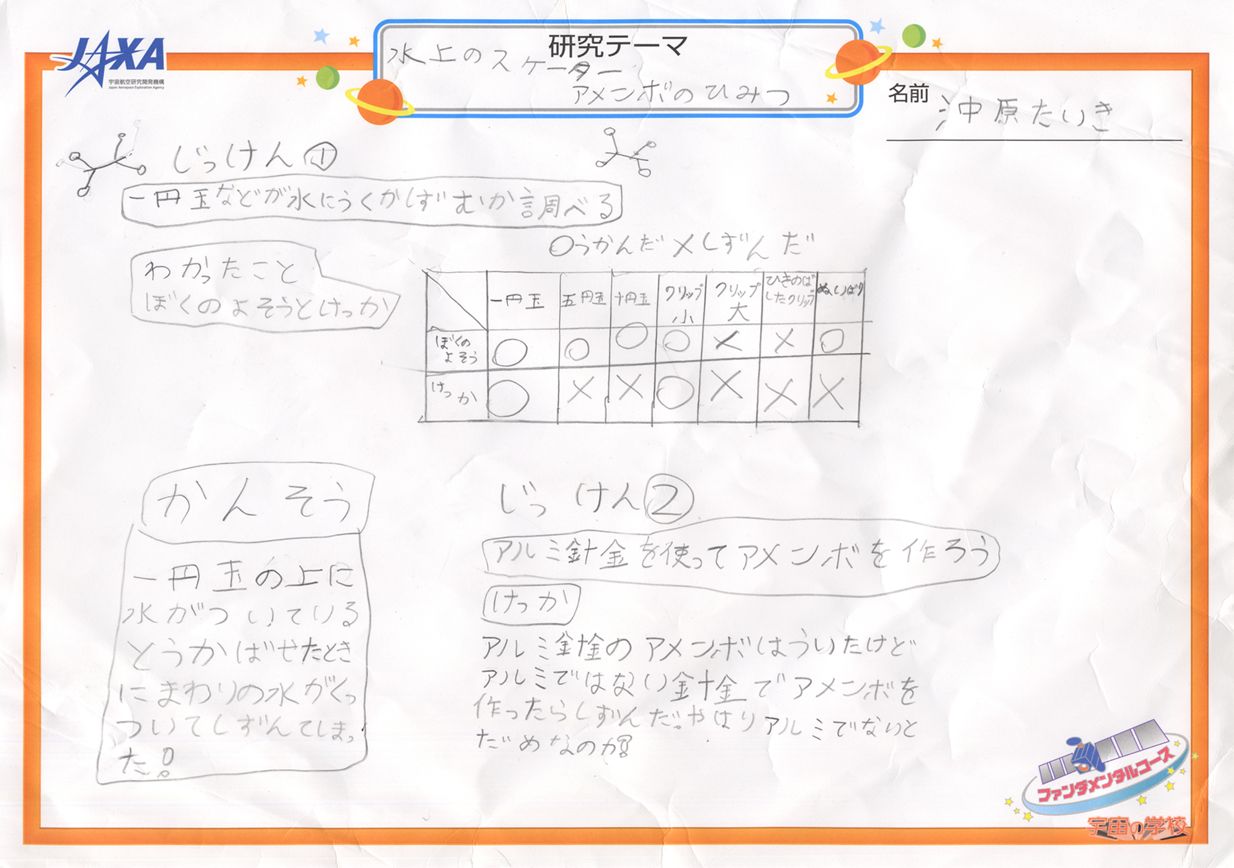 JAXA
宇宙航空研究開発機構
Japan Aerospace Exploration Agency
研究テーマ
水上のスケーター
アメンボのひみつ
名前
沖原たいき
じっけん①
一円玉などが水にうくかしずむか調べる
わかったこと
ぼくのよそうとけっか
○うかんだ×しずんだ
一円玉 五円玉 十円玉 クリップ小 クリップ大 ひきのばしたクリップ ぬいばり
ぼくのよそう ○ ○ ○ ○ × × ○
けっか ○ × × ○ × × ×
かんそう
一円玉の上に
水がついている
とうかばせたとき
にまわりの水がくっ
ついてしずんでしまっ
た!
じっけん②
アルミ針金を使ってアメンボを作ろう
けっか
アルミ針金のアメンボはういたけど
アルミではない針金でアメンボを
作ったらしずんだ。やはりアルミでないと
だめなのか!
ファンダメンタルコース
宇宙の学校